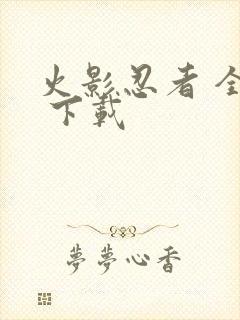 火影忍者 全
下載
夢夢心香